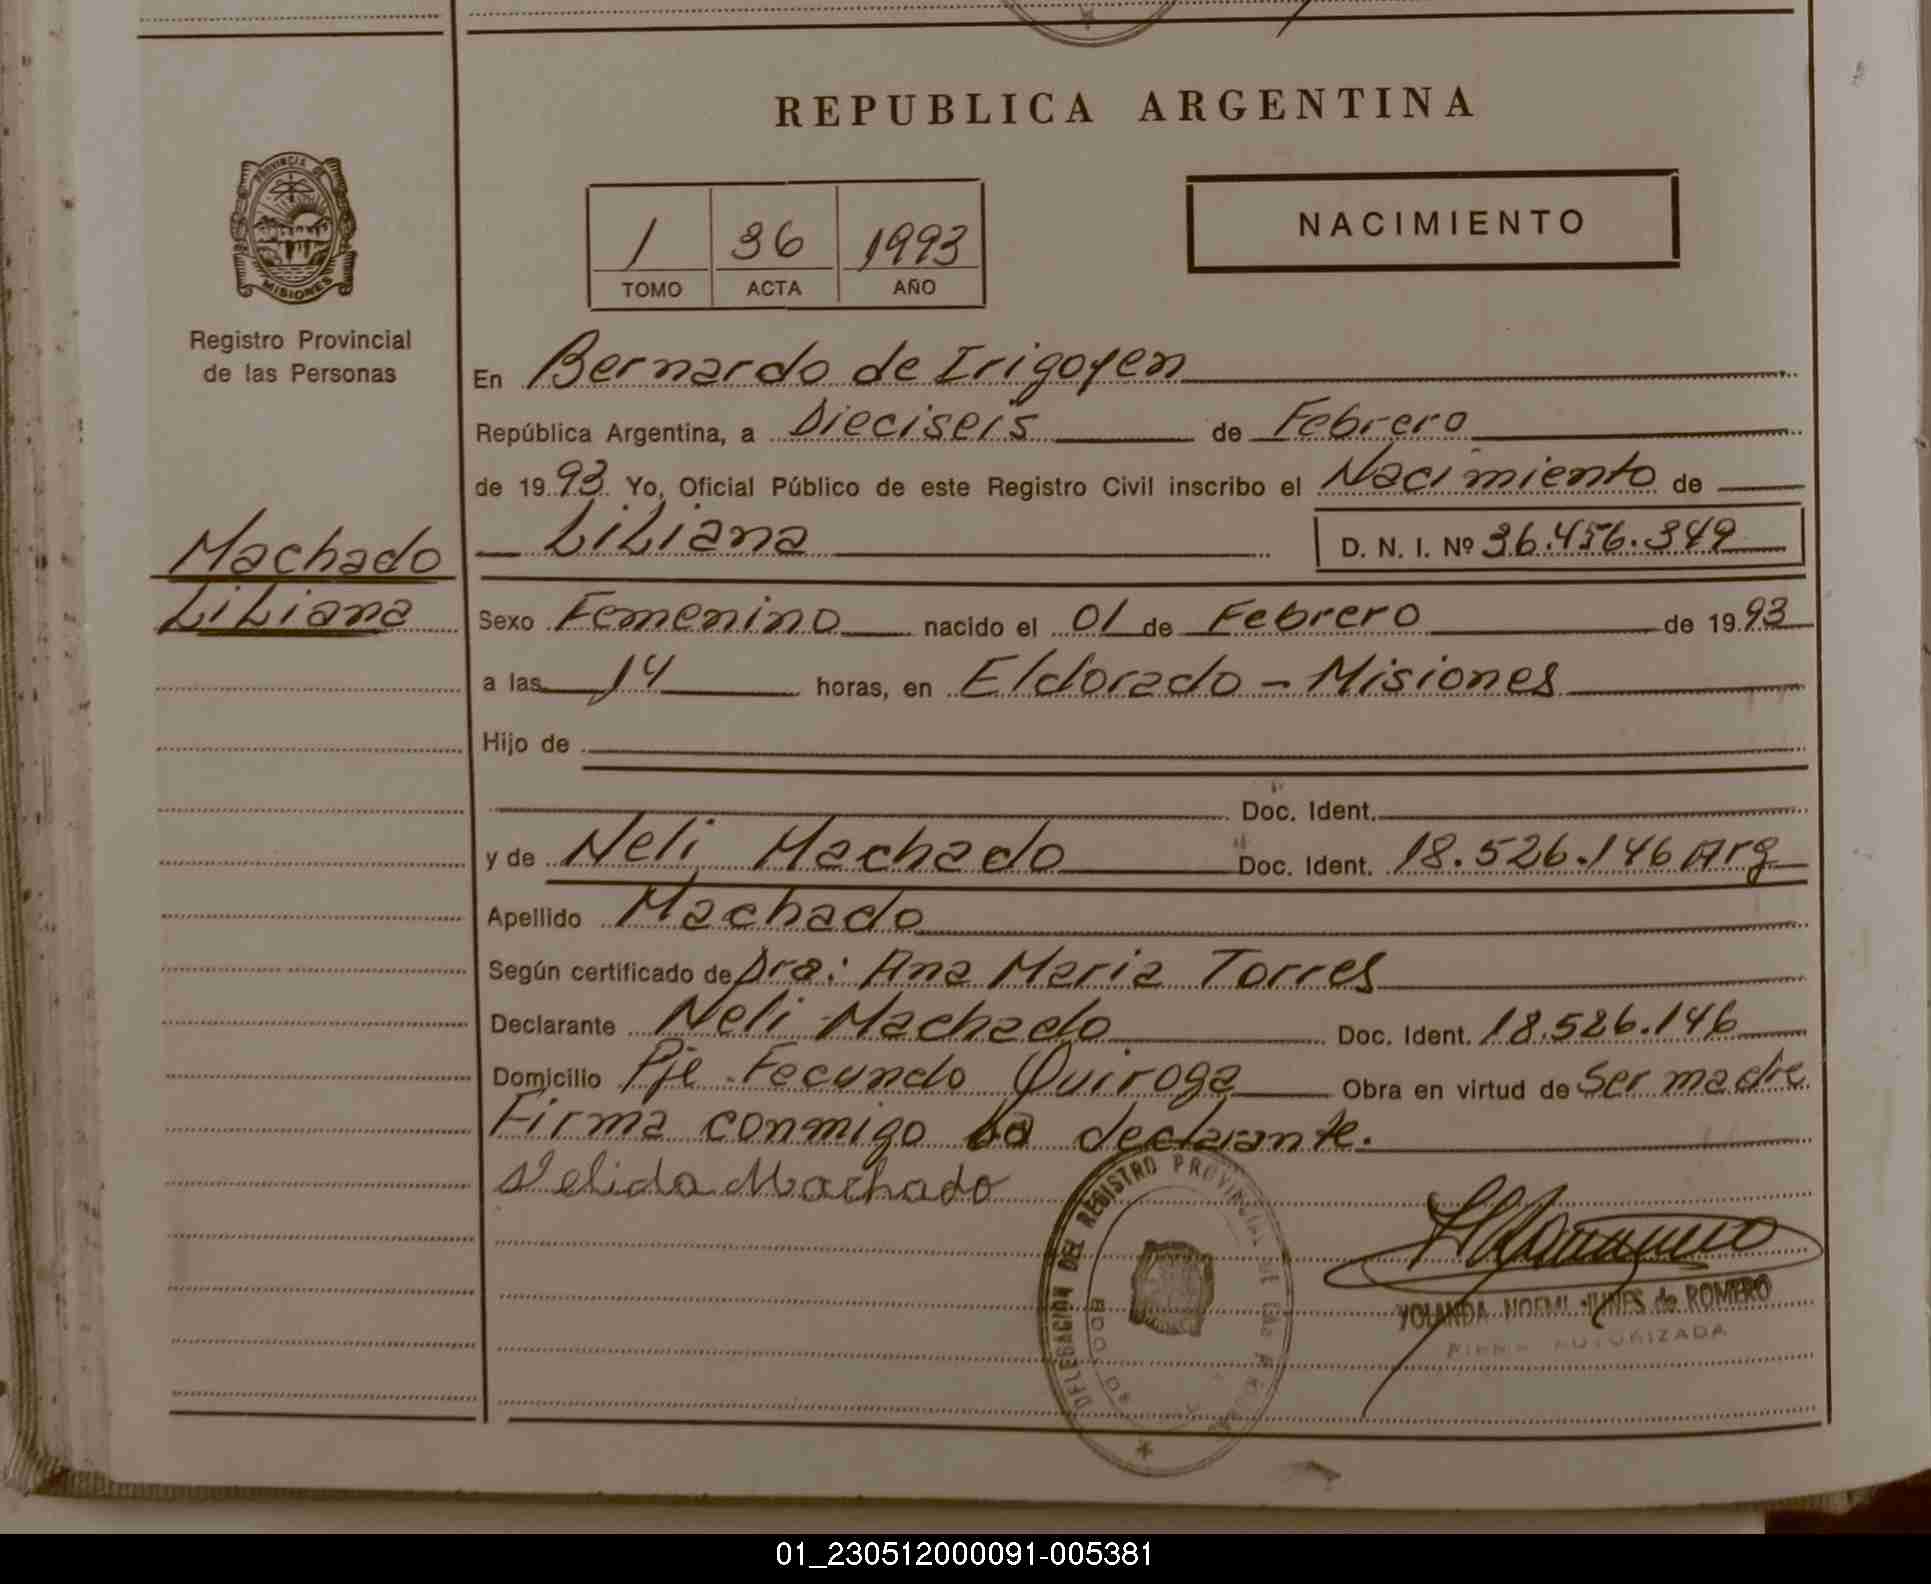 REPUBLICA ARGENTINA
PROVINCIA
MISIONES
Registro Provincial
de las Personas
1 36 1993
TOMO ACTA AÑO
NACIMIENTO
En Bernardo de Irigoyen
República Argentina, a Dieciseis de Febrero
de 1993 Yo, Oficial Público de este Registro Civil inscribo el Nacimiento de
Liliana D. N. I. Nº 36.456.349
Machado
Liliana
Sexo Femenino nacido el 01 de Febrero de 1993
a las 14 horas, en Eldorado - Misiones
Hijo de
Doc. Ident.
y de Neli Machado Doc. Ident. 18.526.146 Arg
Apellido Machado
Según certificado de Dra: Ana Maria Torres
Declarante Neli Machado Doc. Ident. 18.526.146
Domicilio Pje Fecundo Quiroga Obra en virtud de Ser madre
Firma conmigo la declarante.
Nelida Machado
DELEGACION DEL REGISTRO PROVINCIAL DE LAS
YOLANDA NOEMI de ROMERO
FIRMA AUTORIZADA
01_230512000091-005381